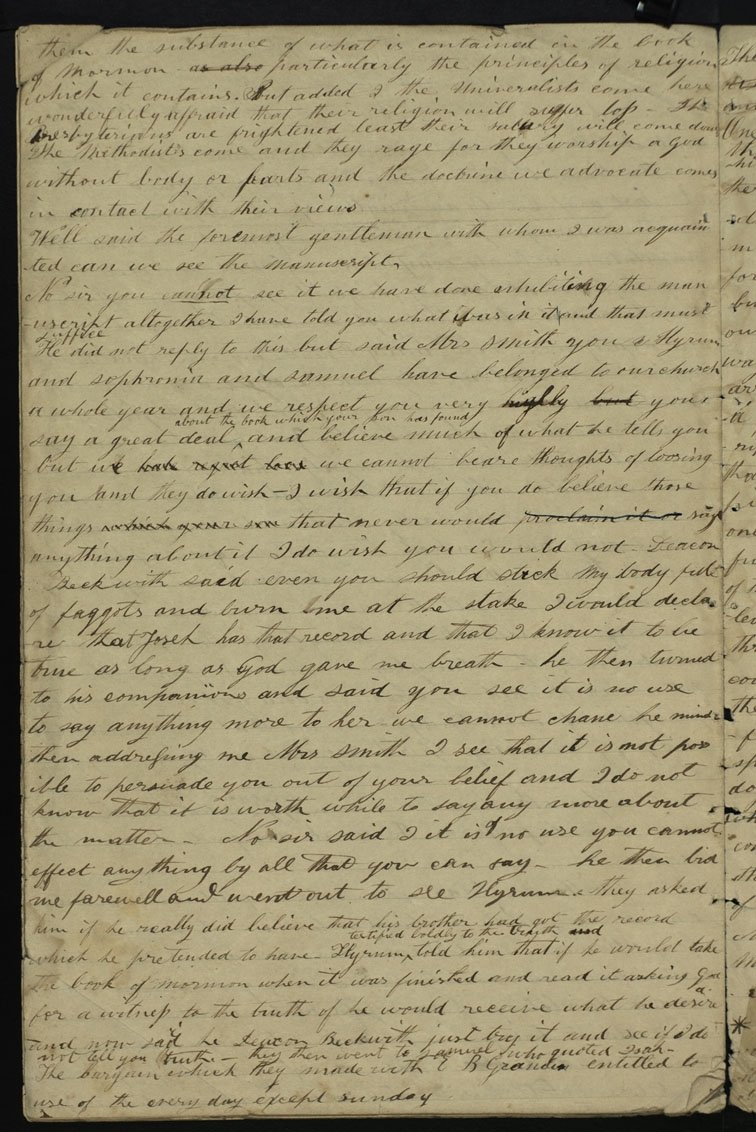 them the substance of what is contained in the book
of Mormon as also particularly the principles of religion
which it contains. But added I the Universalists come here
wonderfully afraid that their religion will suffer loss - The
Presbyterians are frightened least their salary will come down
The Methodists come and they rage for they worship a God
without body or parts and the doctrine we advocate comes
in contact with their views
Well said the foremost gentleman with whom I was acquain
ted can we see the manuscript,
No sir you cannot see it we have done exhibiting the man
uscript altogether I have told you what was in it and that must
suffice
He did not reply to this but said Mrs Smith you & Hyrum
and sophronia and samuel have belonged to our church
a whole year and we respect you very highly but you
about the book which your son has found
say a great deal and believe much of what he tells you
but we we cannot beare thoughts of loosing
you and they do wish - I wish that if you do believe those
things which your son that never would proclaim it or say
anything about it I do wish you would not - Deacon
Beckwith said even you should stick my body full
of faggots and burn me at the stake I would decla
re that Joseh has that record and that I know it to be
true as long as God gave me breath - he then turned
to his companions and said you see it is no use
to say anything more to her we cannot chane he mind
then addressing me Mrs Smith I see that it is not pos
ible to persuade you out of your belief and I do not
know that it is worth while to say any more about
the matter - No sir said I it is no use you cannot
effect any thing by all that you can say - he then bid
me farewell and went out to see Hyrum & they asked
him if he really did believe that his brother had got the record
testified boldly to the truth and
which he pretended to have - Hyrum told him that if he would take
the book of mormon when it was finished and read it asking God
for a witness to the truth of he would receive what he desire
and now said he Deacon Beckwith just try it and see if I do
not tell you truth - they then went to Samuel who quoted Isah-
The bargain which they made with E B Grandin entitled to
use of the every day except sunday